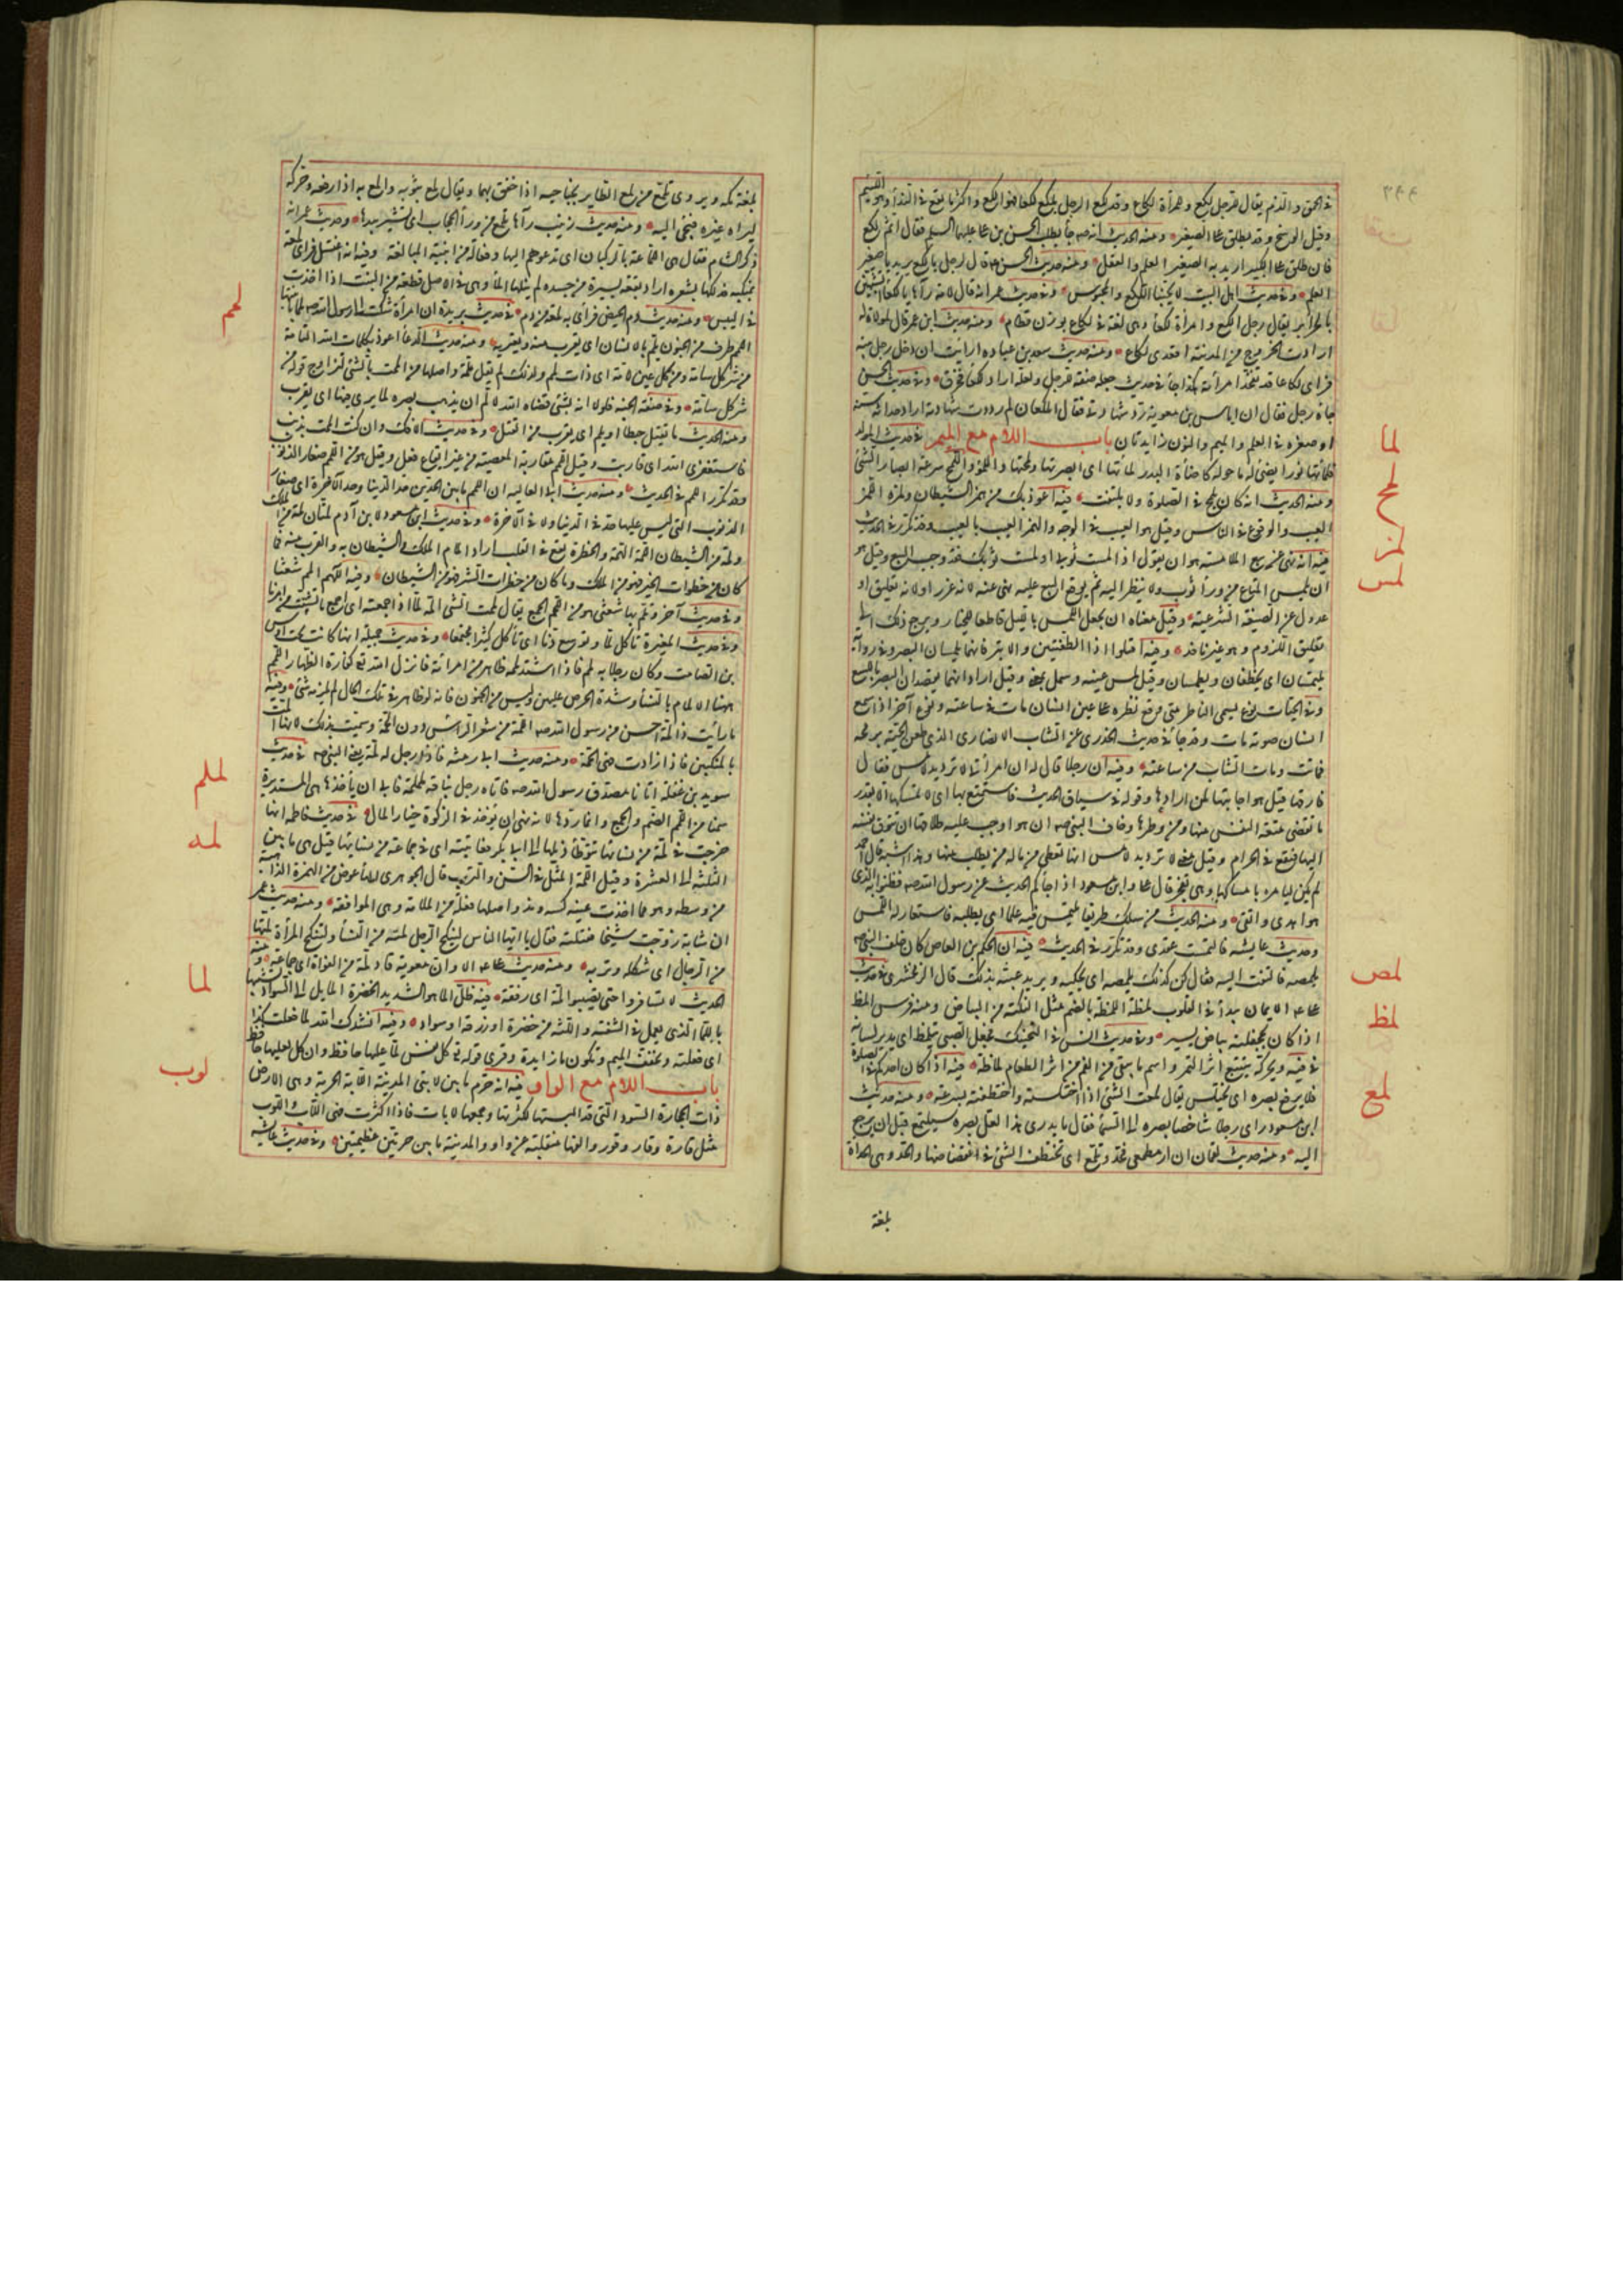 في الحمق والذم يقال للرجل لكع وللمرأة لكاع وقد لكع الرجل يلكع لكعا فهو الكع واكثر ما يقع في النداء وهو اللئيم
وقيل الوسخ وقد يطلق على الصغير ومنه الحديث انه صم جاء يطلب الحسن بن علي عليهما السلم فقال اثم لكع
فان طلق على الكبير اريد به الصغير العلم والعقل ومنه حديث الحسن قال لرجل يا لكع يريد يا صغير
العلم وفي حديث اهل البيت لا يحبنا اللكع والمحيوس وفي حديث عمر انه قال لامة رآها يا لكعاء اتتشبهين
بالحرائر يقال رجل الكع وامرأة لكعاء وهي لغة في لكاع بوزن قطام ومنه حديث ابن عمر قال لمولاة له
ارادت الخروج من المدينة اقعدي لكاع ومنه حديث سعد بن عباده ارايت ان دخل رجل بيته
فراى لكاعا قد تفخذ امرأته هكذا جاء في حديث جعله صفة للرجل ولعله اراد لكعا فحرف وفي حديث الحسن
جاءه رجل فقال ان اياس بن معوية رد شهادتي فقال يا ملكعان لم رددت شهادته اراد حداثة سنه
او صغره في العلم والميم والنون زايدتان باب اللام مع الميم في حديث المولد
فلمأتها نورا يضئ له ما حوله كاضاءة البدر لمأتها اى ابصرتها ولمحتها واللمؤ واللمح سرعة ابصار الشئ
ومنه الحديث انه كان يلمح في الصلوة ولا يلتفت فيه اعوذ بك من همز الشيطان ولمزه اللمز
العيب والوقوع في الناس وقيل هو العيب في الوجه والهمز العيب بالغيب وقد تكرر في الحديث
فيه انه نهى عن بيع الملامسة هو ان يقول اذا لمست ثوبى او لمست ثوبك فقد وجب البيع وقيل هو
ان يلمس المتاع من وراء ثوب ولا ينظر اليه ثم يوقع البيع عليه نهى عنه لانه غرر او لانه تعليق او
عدول عن الصيغة الشرعية وقيل معناه ان يجعل اللمس بالليل قاطعا للخيار ويرجع ذلك الى
تعليق اللزوم وهو غير نافذ وفيه اقتلوا ذا الطفيتين والابتر فانهما يلمسان البصر وفي رواية
يلتمسان اى يخطفان ويطمسان وقيل لمس عينه وسمل بمعنى وقيل اراد انهما يقصدان البصر باللسع
وفي الحيات نوع يسمى الناظر متى وقع نظره على عين انسان مات في ساعته ونوع آخر اذا سمع
انسان صوته مات وقد جاء في حديث الخدري عن الشاب الانصاري الذي طعن الحية برمحه
فماتت ومات الشاب من ساعته وفيه ان رجلا قال له ان امرأتي لا ترد يد لامس فقال
فارقها قيل هو اجابتها لمن ارادها وقوله في سياق الحديث فاستمتع بها اى لا تمسكها الا بقدر
ما تقضى متعة النفس منها ومن وطرها وخاف النبي صم ان هو اوجب عليه طلاقها ان تتوق نفسه
اليها فيقع في الحرام وقيل معنى لا ترد يد لامس انها تعطي من ماله من يطلب منها وهذا اشبه قال احمد
لم يكن ليامره بامساكها وهي تفجر قال علي وابن مسعود اذا جاءكم الحديث عن رسول الله صم فظنوا به الذى
هو اهدى واتقى ومنه الحديث من سلك طريقا يلتمس فيه علما اى يطلبه فاستعار له اللمس
وحديث عايشه فالتمست عقدى وقد تكرر في الحديث فيه ان الحكم بن العاص كان خلف النبي صم
يلمصه فالتفت اليه فقال كن كذلك يلمصه اى يحكيه ويريد عيبه بذلك قال الزمخشري في حديث
على ع م الايمان يبدأ في القلوب لمظة اللمظة بالضم مثل النكتة من البياض ومنه فرس المظ
اذا كان بجحفلته بياض يسير وفي حديث انس في التحنيك فجعل الصبي يتلمظ اى يدير لسانه
في فيه ويحركه يتتبع اثر التمر واسم ما يبقى في الفم من اثر الطعام لماظة فيه اذا كان احدكم في الصلوة
فلا يرفع بصره اى يختلس يقال لمعت الشئ اذا اختلسته واختطفته بسرعة ومنه حديث
ابن مسعود راى رجلا شاخصا بصره الى السماء فقال ما يدري هذا لعل بصره سيلتمع قبل ان يرجع
اليه ومنه حديث لقمان ان ار مطمعى فحدو تلمع اى تختطف الشئ في انقضاضها والحدو هي الحدأة
بلغة
لما
لمح
لمز
لمس
لمص
لمظ
لمع
بلغة مكه ويروى تلمع من لمع الطاير بجناحيه اذا خفق بهما ويقال لمع بثوبه والمع به اذا رفعه وحركه
ليراه غيره فيجئ اليه ومنه حديث زينب رآها تلمع من وراء الحجاب اى تشير بيدها وحديث عمر انه
ذكر الشام فقال هى اللماعة بالركبان اى تدعوهم اليها وفعالة من ابنية المبالغة وفيه انه اغتسل فراى لمعة
بمنكبه فدلكها بشعره اراد بقعة يسيرة من جسده لم ينلها الماء وهي في الاصل قطعة من النبت اذا اخذت
في اليبس ومنه حديث دم الحيض فراى به لمعة من دم في حديث بريدة ان امرأة شكت الى رسول الله صم لمما بابنتها
اللمم طرف من الجنون يلم بالانسان اى يقرب منه ويعتريه ومنه حديث الدعاء اعوذ بكلمات الله التامة
من شر كل سامة ومن كل عين لامة اى ذات لمم ولذلك لم يقل ملمة واصلها من الممت بالشئ ليزاوج قوله من
شر كل سامة وفي صفة الجنة فلولا انه شئ قضاه الله لالم ان يذهب بصره لما يرى فيها اى يقرب
ومنه الحديث ما يقتل حبطا او يلم اى يقرب من القتل وفي حديث الافك وان كنت الممت بذنب
فاستغفرى الله اى قاربت وقيل اللمم مقاربة المعصية من غير ايقاع فعل وقيل هو من اللمم صغار الذنوب
وقد تكرر اللمم في الحديث ومنه حديث ابي العاليه ان اللمم ما بين الحدين حد الدنيا وحد الآخرة اى صغار
الذنوب التى ليس عليها حد في الدنيا ولا في الآخرة وفي حديث ابن مسعود لابن آدم لمتان لمة من الملك
ولمة من الشيطان اللمة الهمة والخطرة تقع في القلب اراد المام الملك او الشيطان به والقرب منه فما
كان من خطرات الخير فهو من الملك وما كان من خطرات الشر فهو من الشيطان وفيه اللهم المم شعثنا
وفي حديث آخر وتلم بها شعثى هو من اللمم الجمع يقال لممت الشئ المه لما اذا جمعته اى اجمع ما تشتت من امرنا
وفي حديث المغيرة تأكل لما وتوسع ذما اى تأكل كثيرا مجتمعا وفي حديث جميلة انها كانت تحت اوس
بن الصامت وكان رجلا به لمم فاذا اشتد لممه ظاهر من امرأته فانزل الله تع كفارة الظهار اللمم
ههنا الالمام بالنساء وشدة الحرص عليهن وليس من الجنون فانه لو ظاهر في تلك الحال لم يلزمه شئ وفيه
ما رأيت ذا لمة احسن من رسول الله صم اللمة من شعر الراس دون الجمة وسميت بذلك لانها المت
بالمنكبين فاذا زادت فهي الجمة ومنه حديث ابي رمثه فاذا رجل له لمة يعني النبي صم في حديث
سويد بن غفلة اتانا مصدق رسول الله صم فاتاه رجل بناقة ململمة فابى ان يأخذها هى المستديرة
سمنا من اللم الضم والجمع وانما ردها لانه نهى ان يؤخذ في الزكوة خيار المال في حديث فاطمه انها
خرجت في لمة من نسائها تتوطأ ذيلها الى ابي بكر فعاتبته اى في جماعة من نسائها قيل هي ما بين
الثلثة الى العشرة وقيل اللمة المثل في السن والترب قال الجوهرى الهاء عوض من الهمزة الذاهبة
من وسطه وهو مما اخذت عينه كسه ومذ واصلها فعلة من الملامة وهى الموافقة ومنه حديث عمر
ان شابة زوجت شيخا فقتلته فقال يا ايها الناس لينكح الرجل لمته من النساء ولتنكح المرأة لمتها
من الرجال اى شكله وتربه ومنه حديث على ع م الا وان معوية قاد لمة من الغواة اى جماعة ومنه
الحديث لا تسافروا حتى تصيبوا لمة اى رفقة فيه ظل المى هو الشديد الخضرة المايل الى السواد تشبيها
باللما الذى يعمل في الشفة واللثه من خضرة او زرقة او سواد وفيه انشدك الله لما فعلت كذا
اى فعلته وتخفف الميم وتكون ما زايدة وقرى قوله تع كل نفس لما عليها حافظ وان كل لعليها حافظ
باب اللام مع الواو فيه انه حرم ما بين لابتى المدينة اللابة الحرة وهى الارض
ذات الحجارة السود التى قد البستها لكثرتها وجمعها لابات فاذا كثرت فهى اللاب واللوب
مثل قارة وقار وقور والفها منقلبة عن واو والمدينة ما بين حرتين عظيمتين وفي حديث عايشه
لمم
لملم
لمه
لما
لوب